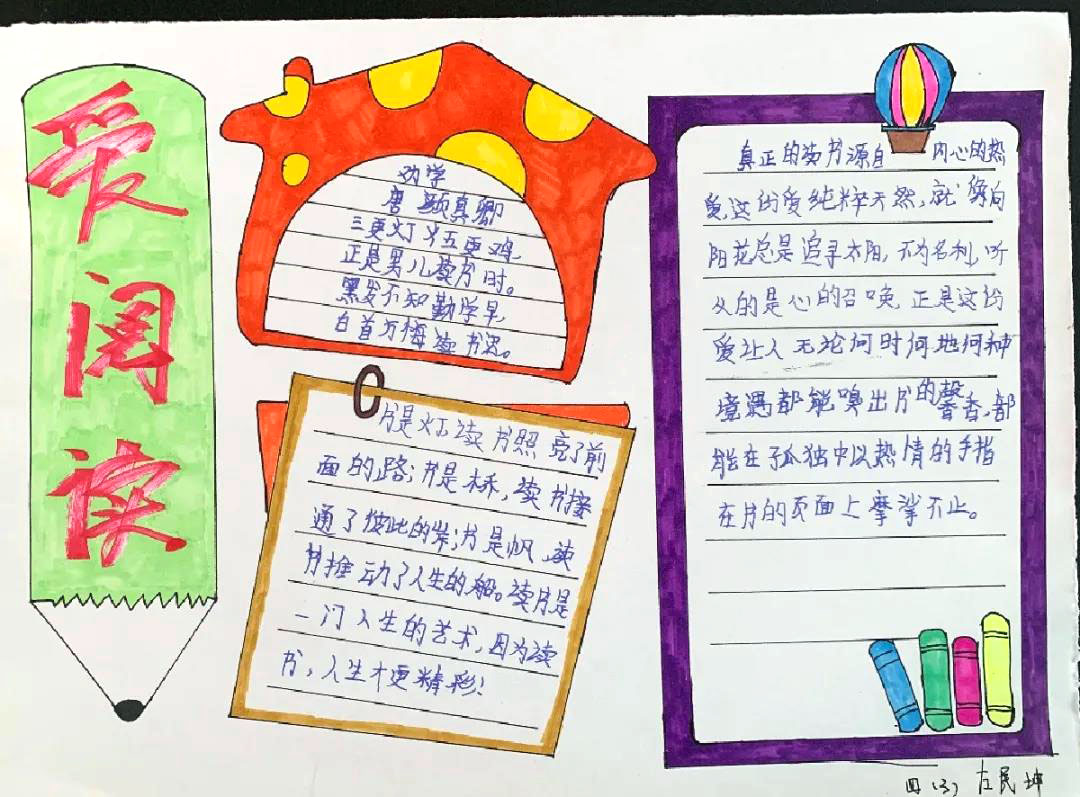 爱阅读
劝学
唐 颜真卿
三更灯火五更鸡,
正是男儿读书时。
黑发不知勤学早,
白首方悔读书迟。
书是灯,读书照亮了前
面的路;书是桥,读书接
通了彼此的岸;书是帆,读
书推动了人生的船。读书是
一门人生的艺术,因为读
书,人生才更精彩!
真正的读书源自内心的热
爱,这份爱纯粹天然,就像向
阳花总是追寻太阳,不为名利,听
从的是心的召唤,正是这份
爱让人无论何时何地何种
境遇都能嗅出书的馨香,都
能在孤独中以热情的手指
在书的页面上摩挲不止。
四(3) 左民坤